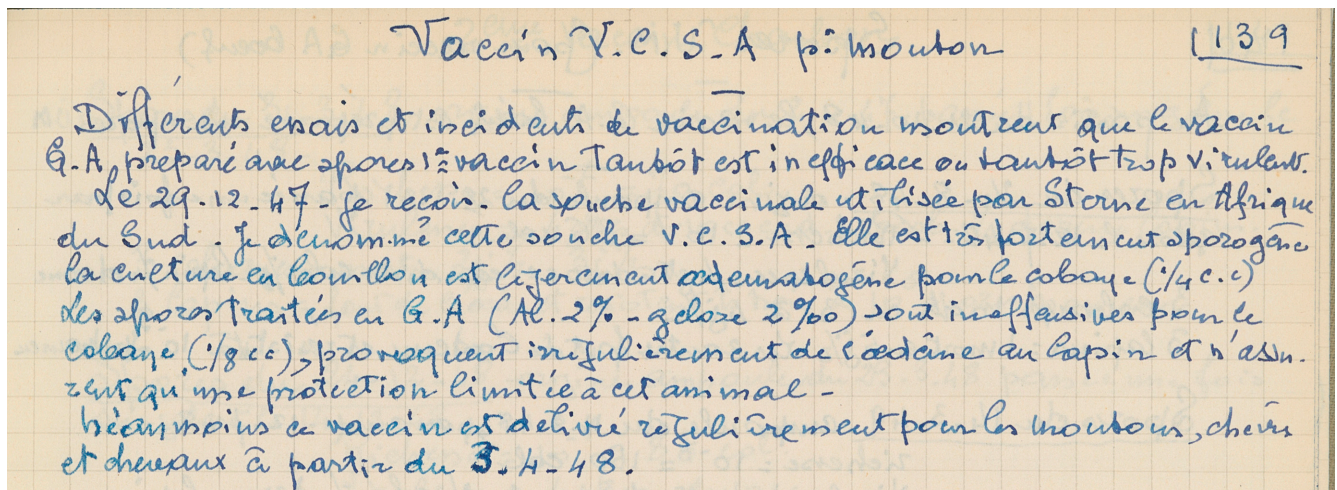 Vaccin V.C.S.A pr mouton 139
Différents essais et incidents de vaccination montrent que le vaccin
G.A, preparé avec spores 1er vaccin tantôt est inefficace ou tantôt trop virulent.
Le 29.12-47- Je reçois. la souche vaccinale utilisée par Sterne en Afrique
du Sud. Je dénommé cette souche V.C.S.A. Elle est très fortement sporogène
la culture en bouillon est légèrement œdematogène pour le cobaye (1/4 c.c)
Les spores traitées en G.A (Al. 2% - gelose 2‰) sont inoffensives pour le
cobaye (1/8 cc), provoquent irrégulièrement de l'œdème au lapin et n'assu-
rent qu'une protection limitée à cet animal -
Néanmoins ce vaccin est délivré régulièrement pour les moutons, chèvres
et chevaux à partir du 5.4-48.